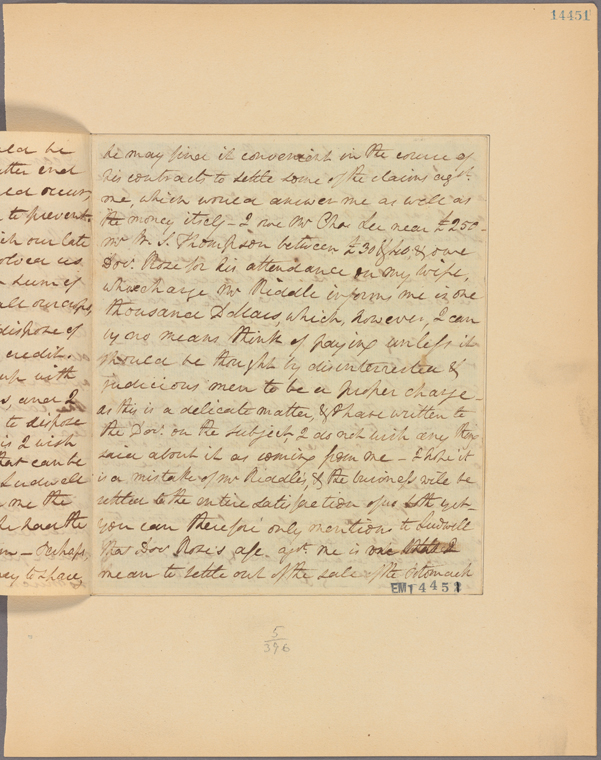 14451
he may find it convenient in the course of
his contracts to settle some of the claims agst.
me, which would answer me as well as
the money itself - I owe Mr Chas Lee near £250 -
Mr W. S. Thompson between £30 & 40 & owe
Docr. Rose for his attendance on my wife,
whose charge Mr Riddle informs me is one
thousand Dollars, which, however, I can
by no means think of paying unless it
should be thought by disinterested &
judicious men to be a proper charge -
as this is a delicate matter, & I have written to
the Docr. on the subject, I do not wish any thing
said about it as coming from me - I hope it
is a mistake of Mr Riddles, & the business will be
settled to the entire satisfaction of us both yet
you can therefore only mention to Ludwell
that Docr. Rose's agst me is one I
mean to settle out of the sale of the Potomack
EM14451
uld be
atter end
uld occur,
to prevent
ich our late
olved us
sum of
all our
dispose of
credit.
up with
and I
to dispose
is I wish
that can be
Ludwell
me the
he has the
Perhaps,
5
396